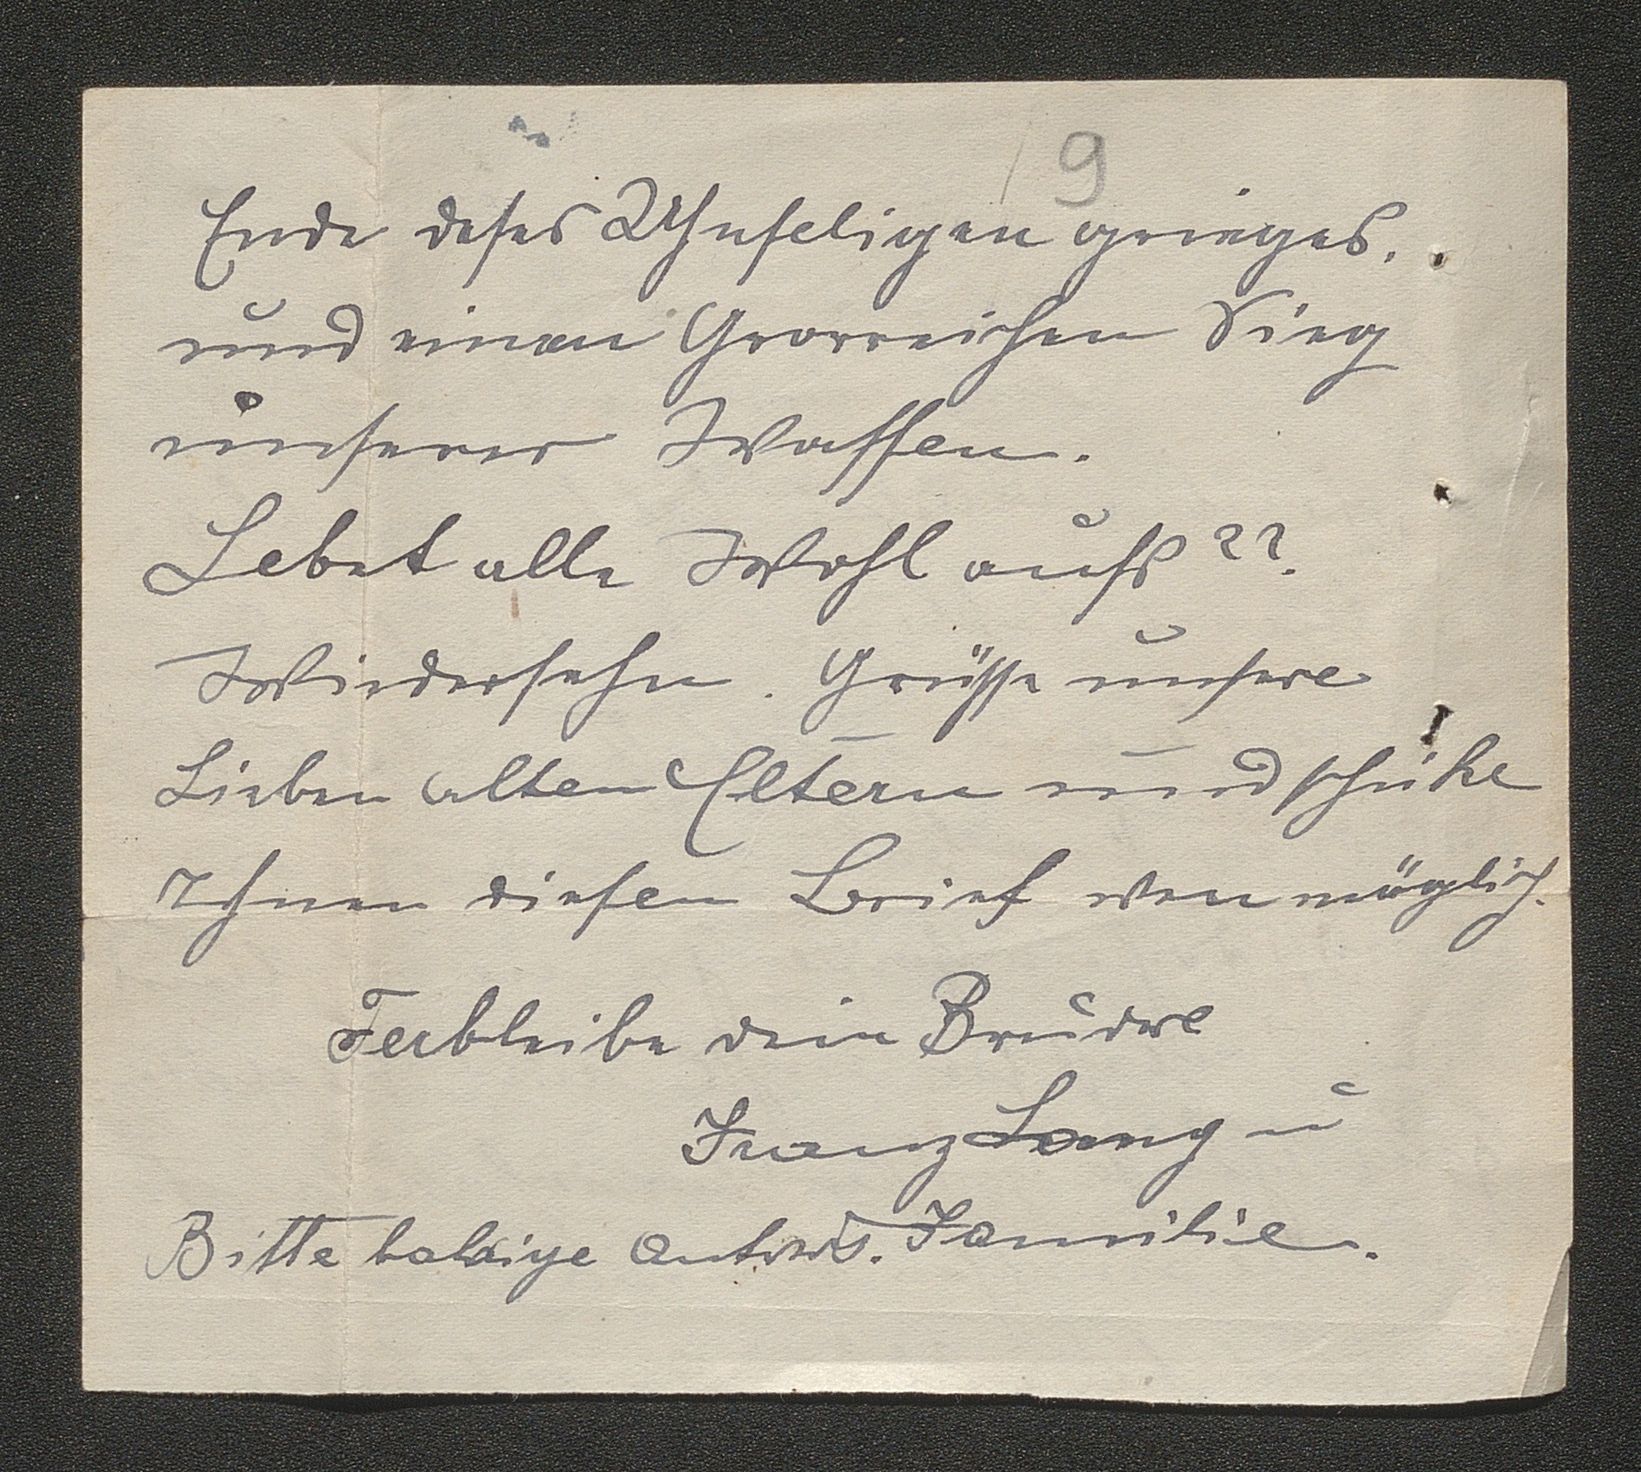 9
Ende deses Uhnseligen grieges.
und einen Grorreichen Sieg
unserer Waffen.
Lebet alle Wohl aufs ??.
Wiedersehn. Grüsse unsere
Lieben alten Eltern und schike
Ihnen diesen Brief wen möglich.
Ferbleibe dein Bruder
Franz Lang u
Bitte baldige antwort. Familie.